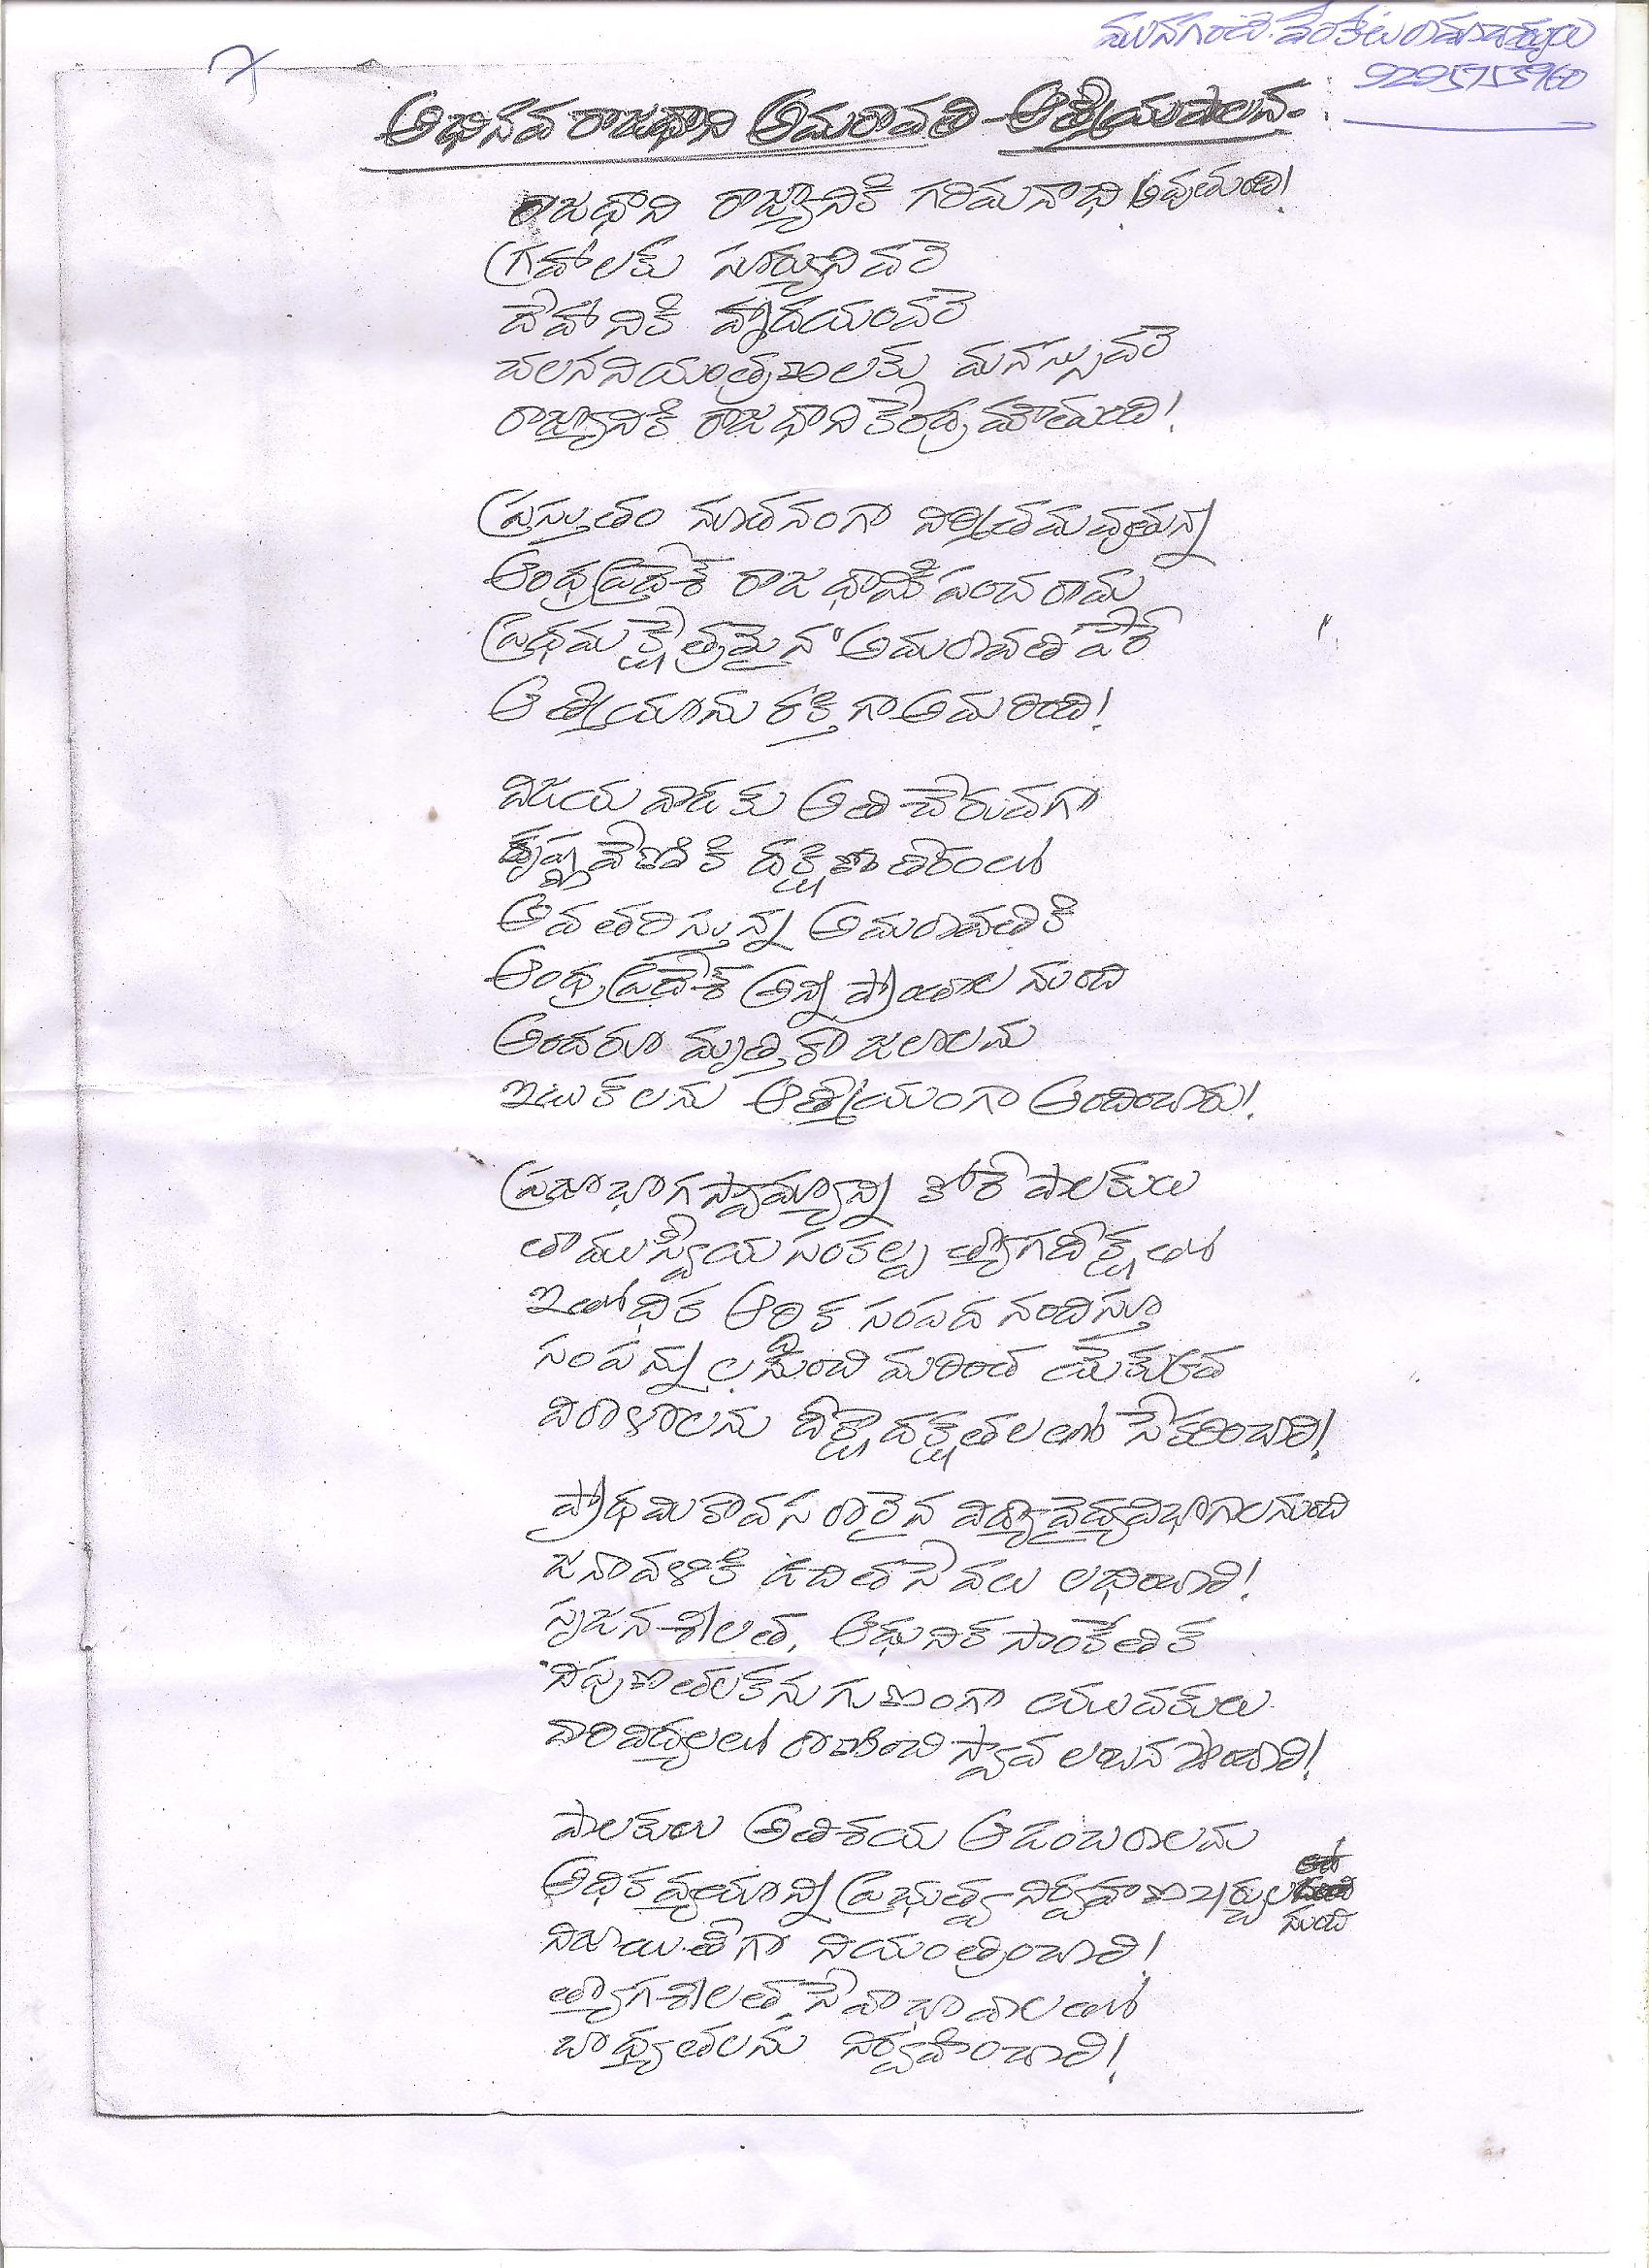 మునగంటి వేంకట రామాచార్యులు
9295753960
అభినవ రాజధాని అమరావతి - ఆత్మీయపాలన.
రాజధాని రాజ్యానికి గరిమనాభి అవుతుంది!
గ్రహాలకు సూర్యుని వలె
దేహానికి హృదయంవలె
చలననియంత్రణలకు మనస్సువలె
రాజ్యానికి రాజధాని కేంద్రమౌతుంది!
ప్రస్తుతం నూతనంగా నిర్మితమవుతున్న
ఆంధ్రప్రదేశ్ రాజధానికి పంచరామ
ప్రథమ క్షేత్రమైన "అమరావతి" పేరే
ఆత్మీయానురక్తిగా అమరింది!
విజయవాడకు అతి చేరువగా
కృష్ణవేణికి దక్షిణ తీరంలో
అవతరిస్తున్న అమరావతికి
ఆంధ్రప్రదేశ్ అన్ని ప్రాంతాల నుంచి
అందరూ మృత్తికా జలాలను
ఇటుకలను ఆత్మీయంగా అందించారు!
ప్రజాభాగస్వామ్యాన్ని కోరే పాలకులు
తాముస్వీయసంకల్ప త్యాగదీక్షలతో
ఇతోధిక ఆర్థిక సంపద నందిస్తూ
సంపన్నులనుంచి మరింత యెక్కువ
విరాళాలను దీక్షాదక్షతలతో సేకరించాలి!
ప్రాథమికావసరాలైన విద్యావైద్యవిభాగాలనుంచి
జనావళికి ఉచితసేవలు లభించాలి!
సృజనశీలత, ఆధునిక సాంకేతిక
నిపుణతలకనుగుణంగా యువకులు
వారివిద్యలలో రాణించి స్వావలంబన పొందాలి!
పాలకులు అతిశయ ఆడంబరాలను
అధికవ్యయాన్ని ప్రభుత్వనిర్వహణ ఖర్చుల నుంచి
నిజాయితీగా నియంత్రించాలి!
త్యాగశీలత, సేవాభావాలతో
బాధ్యతలను నిర్వహించాలి!